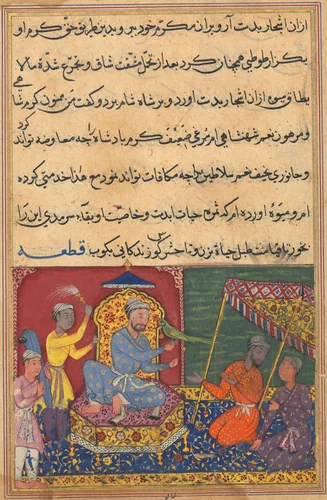 ازان اشجار بدست آر و بران مکرتبر خود برو بدین طریق حق کرم او
بگزار طوطی همچنان کرد بعد از تحمل مشقت شاق و تجرع شدة مالا
یطاق میوه ازان اشجار بدست آورد و بر شاه شام برد و گفت من ممنون کرم شا
و مرهون نعم شهنشاهی ام مرغی ضعیف کرم بادشاه را چه معاوضه تواند کرد
و جانوری نحیف نعم سلاطین را چه مکافات تواند نمود مع هذا خدمتی کرده
ام و میوه آورده ام که ثمره حیات ابدست و خاصیت او بقاء سرمدی این را
بخور تا قیامت طبل حیاة بزن و تا حشر کوس زندکانی بکوب قطعه